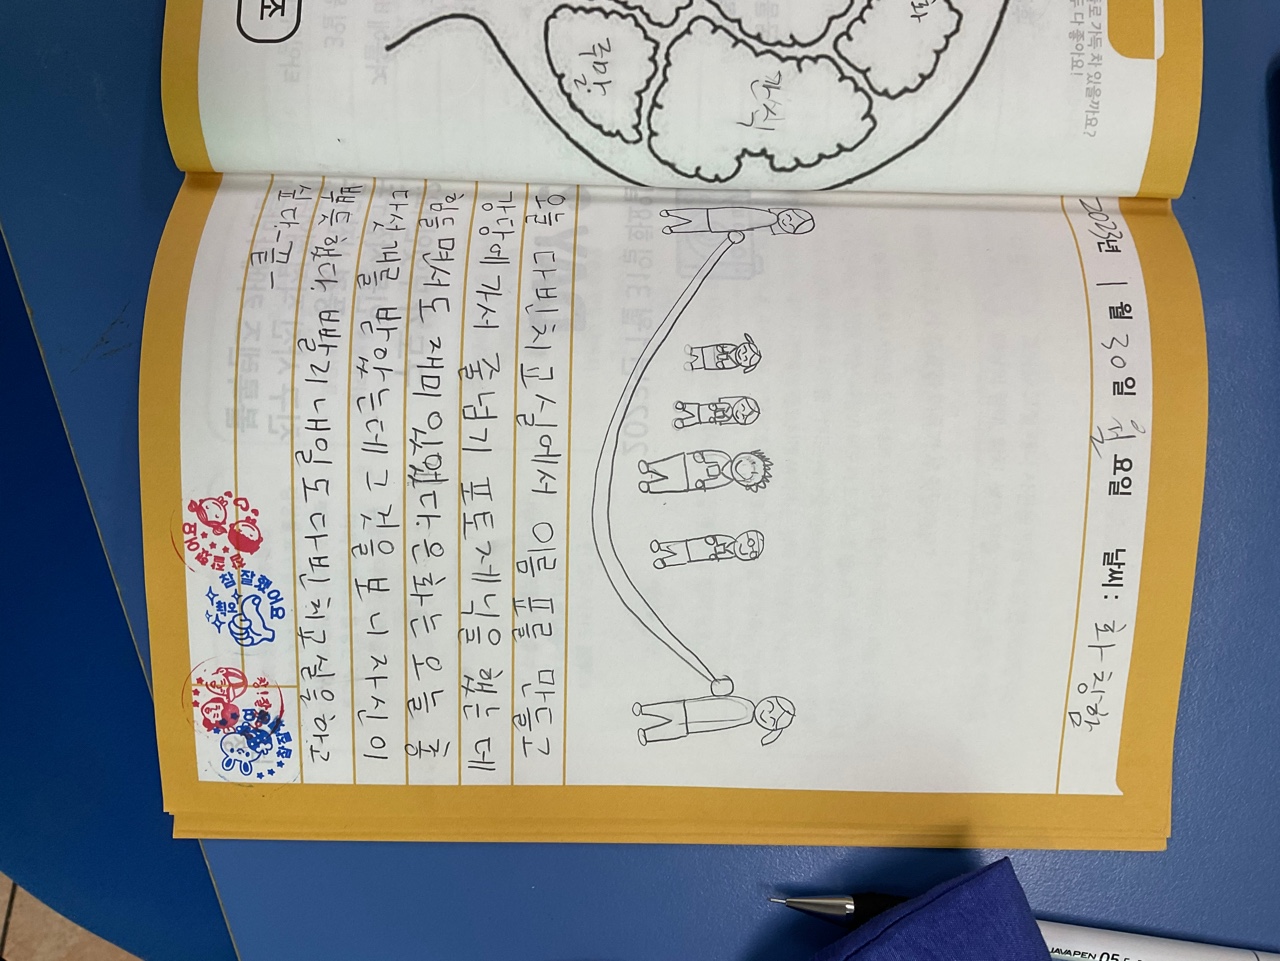 로 가득 차 있을까요?
두 다 좋아요!
화
간식
주말
조
2023년 1월 30일 월요일 날씨: 화창함
오늘 다빈치교실에서 이름표를 만들고
강당에 가서 줄넘기 포토제닉을 했는데
힘들면서도 재미있었다. 은화는 오늘 총
다섯개를 받았는데 그것을 보니 자신이
뿌듯했다. 빨리 내일도 다빈치교실을 하고
싶다.-끝-
참잘했어요
참!잘했
JAVAPEN 05